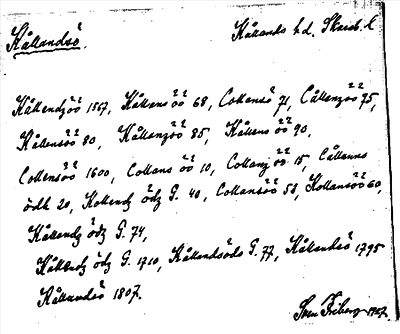 Kållandsö. Kållands hd. Skarab. l.
Kållendzöö 1567, Kållans öö 68, Collensö 71, Cållenzöö 75,
Kållensöö 80, Kållenzöö 85, Kållens öö 90,
Collensöö 1600, Collans öö 10, Collanz öö 15, Cållanns
ödh 20, Kollendz ödz G. 40, Collansöö 50, Kollansöö 60,
Kållandz ödz G. 74,
Kållendz ödz G. 1710, Kållandsöds G. 77, Kållandsö 1795
Kållandsö 1807.
Sven Friberg 1957.